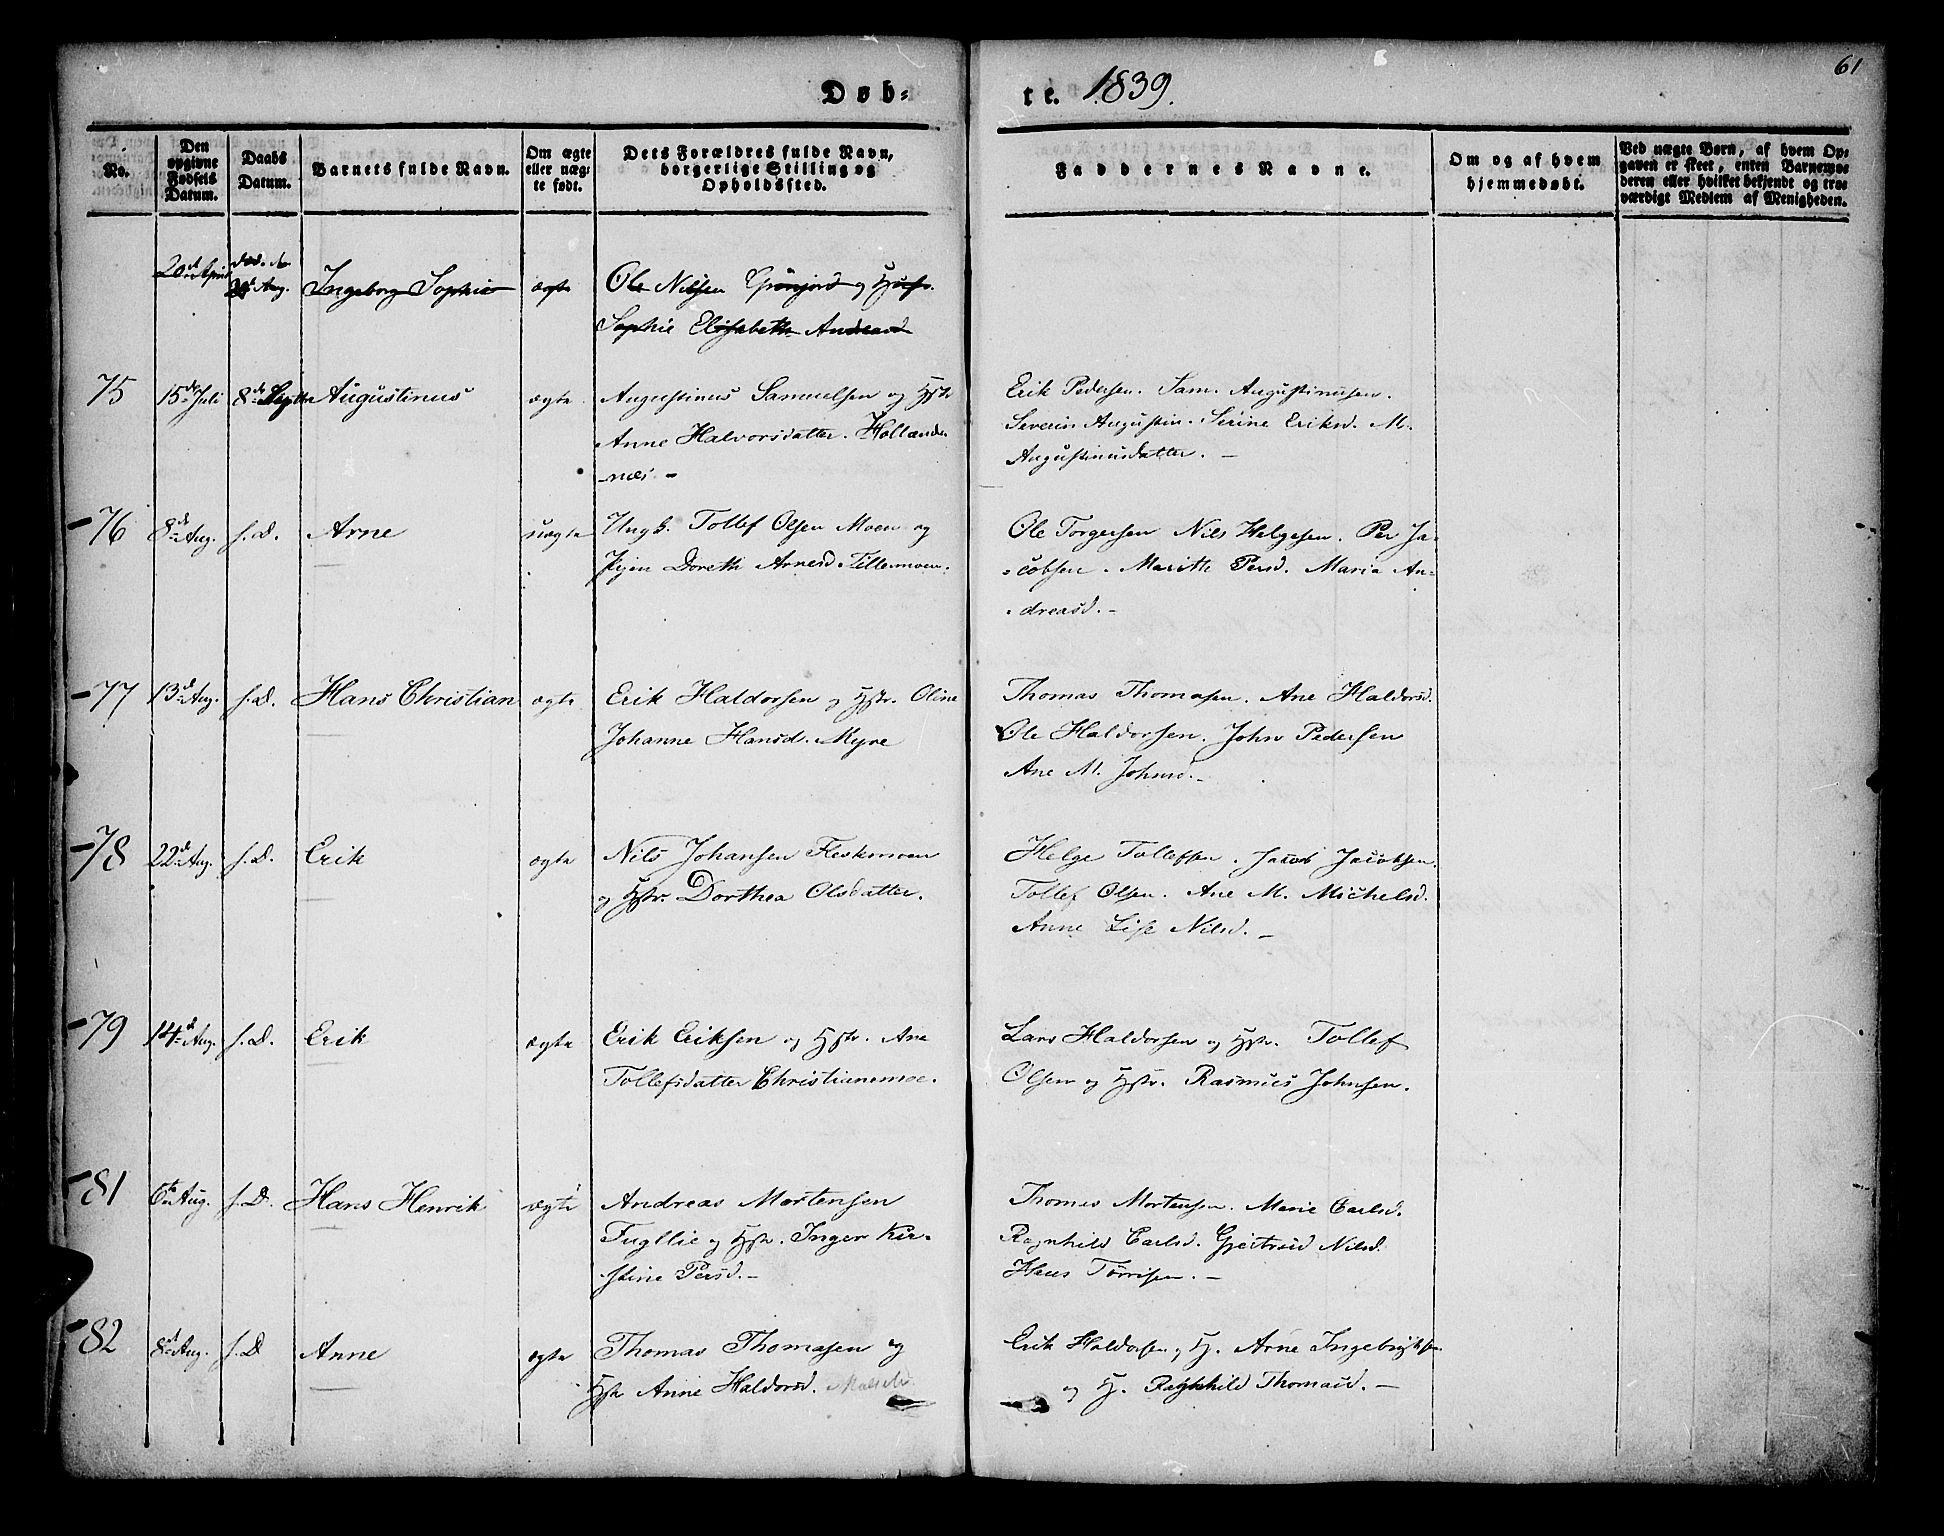 Døb-
te. 1839.
61
No.
Den opgivne Fødsels Datum.
Daabs Datum.
Barnets fulde Navn.
Om ægte eller uægte født.
Dets Forældres fulde Navn, borgerlige Stilling og Opholdssted.
Faddernes Navne.
Om og af hvem hjemmedøbt.
Ved uægte Børn, af hvem Opgaven er skeet, enten Barnemoderen eller hvilket bekjendt og troværdigt Medlem af Menigheden.
20de April Aug. Ingeborg Sophie ægte Ole Nilsen Grønjord og
Sophie Elisabeth Andreasd
75 15de Juli 8de Septbr Augustinus ægte Augustinus Samuelsen og Hstr
Anne Halvorsdatter. Hollænde-
-næs. -
Erik Pedersen. Sam. Augustinusen.
Severin Augustin. Serine Eriksd. M.
Augustinusdatter. -
-76 8de Aug. s. D. Arne uægte Ungk. Tollef Olsen Moen og
Pigen Doreth Arnesd. Lillemoen.
Ole Torgersen Nils Helgesen. Per Ja-
-cobsen. Marith Persd. Maria An-
-dreasd. -
-77 13d Aug. s. D. Hans Christian ægte Erik Haldorsen og Hstr. Oline
Johanne Hansd. Myre
Thomas Thomasen. Ane Haldorsd.
Ole Haldorsen. John Pedersen
Ane M. Johnsd. -
-78 22d Aug. s. D. Erik ægte Nils Johansen Feskmoen
og Hstr. Dorthea Olsdatter.
Helge Tollefsen. Jacob Jacobsen.
Tollef Olsen. Ane M. Michelsd.
Anne Lise Nilsd. -
-79 14d Aug. s. D. Erik ægte Erik Eriksen og Hstr. Ane
Tollefsdatter Christianemoe.
Lars Haldorsen og Hstr. Tollef
Olsen og Hstr. Rasmus Johnsen.
-81 6te Aug. s. D. Hans Henrik ægte Andreas Mortensen
Fugllie og Hstr. Inger Kir-
stine Persd. -
Thomas Mortensen. Marie Carlsd.
Ragnhild Carlsd. Gjertrud Nilsd.
Hans Tørrisen. -
-82 8de Aug. s. D Anne ægte Thomas Thomasen og
Hstr Anne Haldorsd.
Erik Haldorsen og H. Arne Ingebrigtsen
og H. Ragnhild Thomasd. -